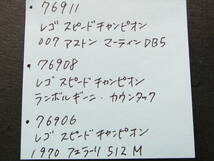 ・76911
レゴ スピードチャンピオン
007 アストン マーティンDB5
・76908
レゴ スピードチャンピオン
ランボルギーニ・カウンタック
・76906
レゴ スピードチャンピオン
1970 フェラーリ 512 M